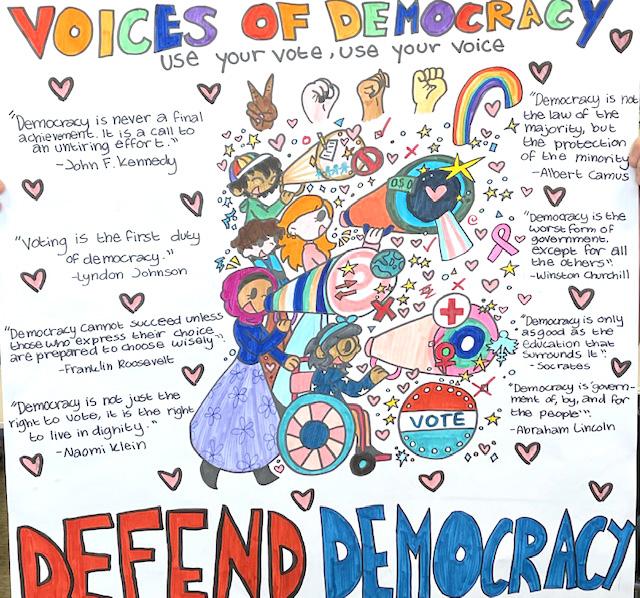 VOICES OF DEMOCRACY
use your vote, use your voice
"Democracy is never a final
achievement. It is a call to
an untiring effort."
-John F. Kennedy
"Voting is the first duty
of democracy."
-Lyndon Johnson
"Democracy cannot succeed unless
those who express their choice
are prepared to choose wisely".
-Franklin Roosevelt
"Democracy is not just the
right to vote, it is the right
to live in dignity."
-Naomi Klein
"Democracy is not
the law of the
majority, but
the protection
of the minority
-Albert Camus
"Democracy is the
worst form of
government,
except for all
the others"
-Winston Churchill
"Democracy is only
as good as the
education that
surrounds it"
-Socrates
"Democracy is govern-
ment of, by, and for
the people".
-Abraham Lincoln
VOTE
DEFEND DEMOCRACY